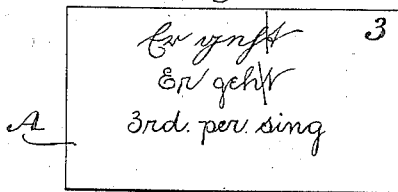 Er geht 3
Er geht
A 3rd. per. sing